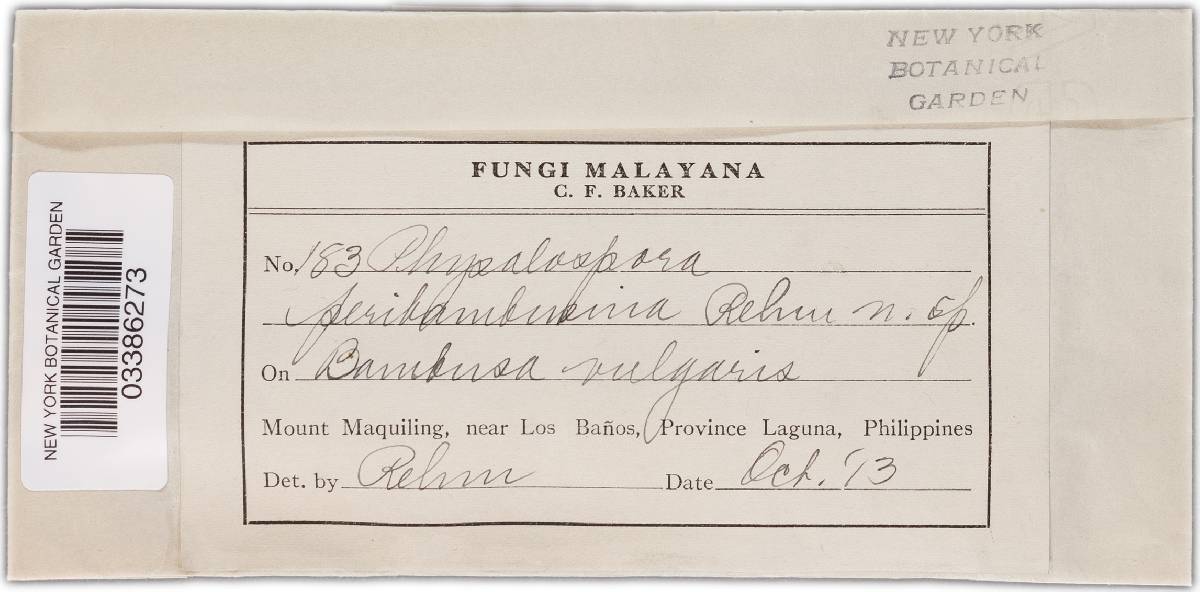 NEW YORK
BOTANICAL
GARDEN
FUNGI MALAYANA
C. F. BAKER
No. 183 Physalospora
peribambusina Rehm n. sp.
On Bambusa vulgaris
Mount Maquiling, near Los Baños, Province Laguna, Philippines
Det. by Rehm Date Oct. '13
NEW YORK BOTANICAL GARDEN
03386273